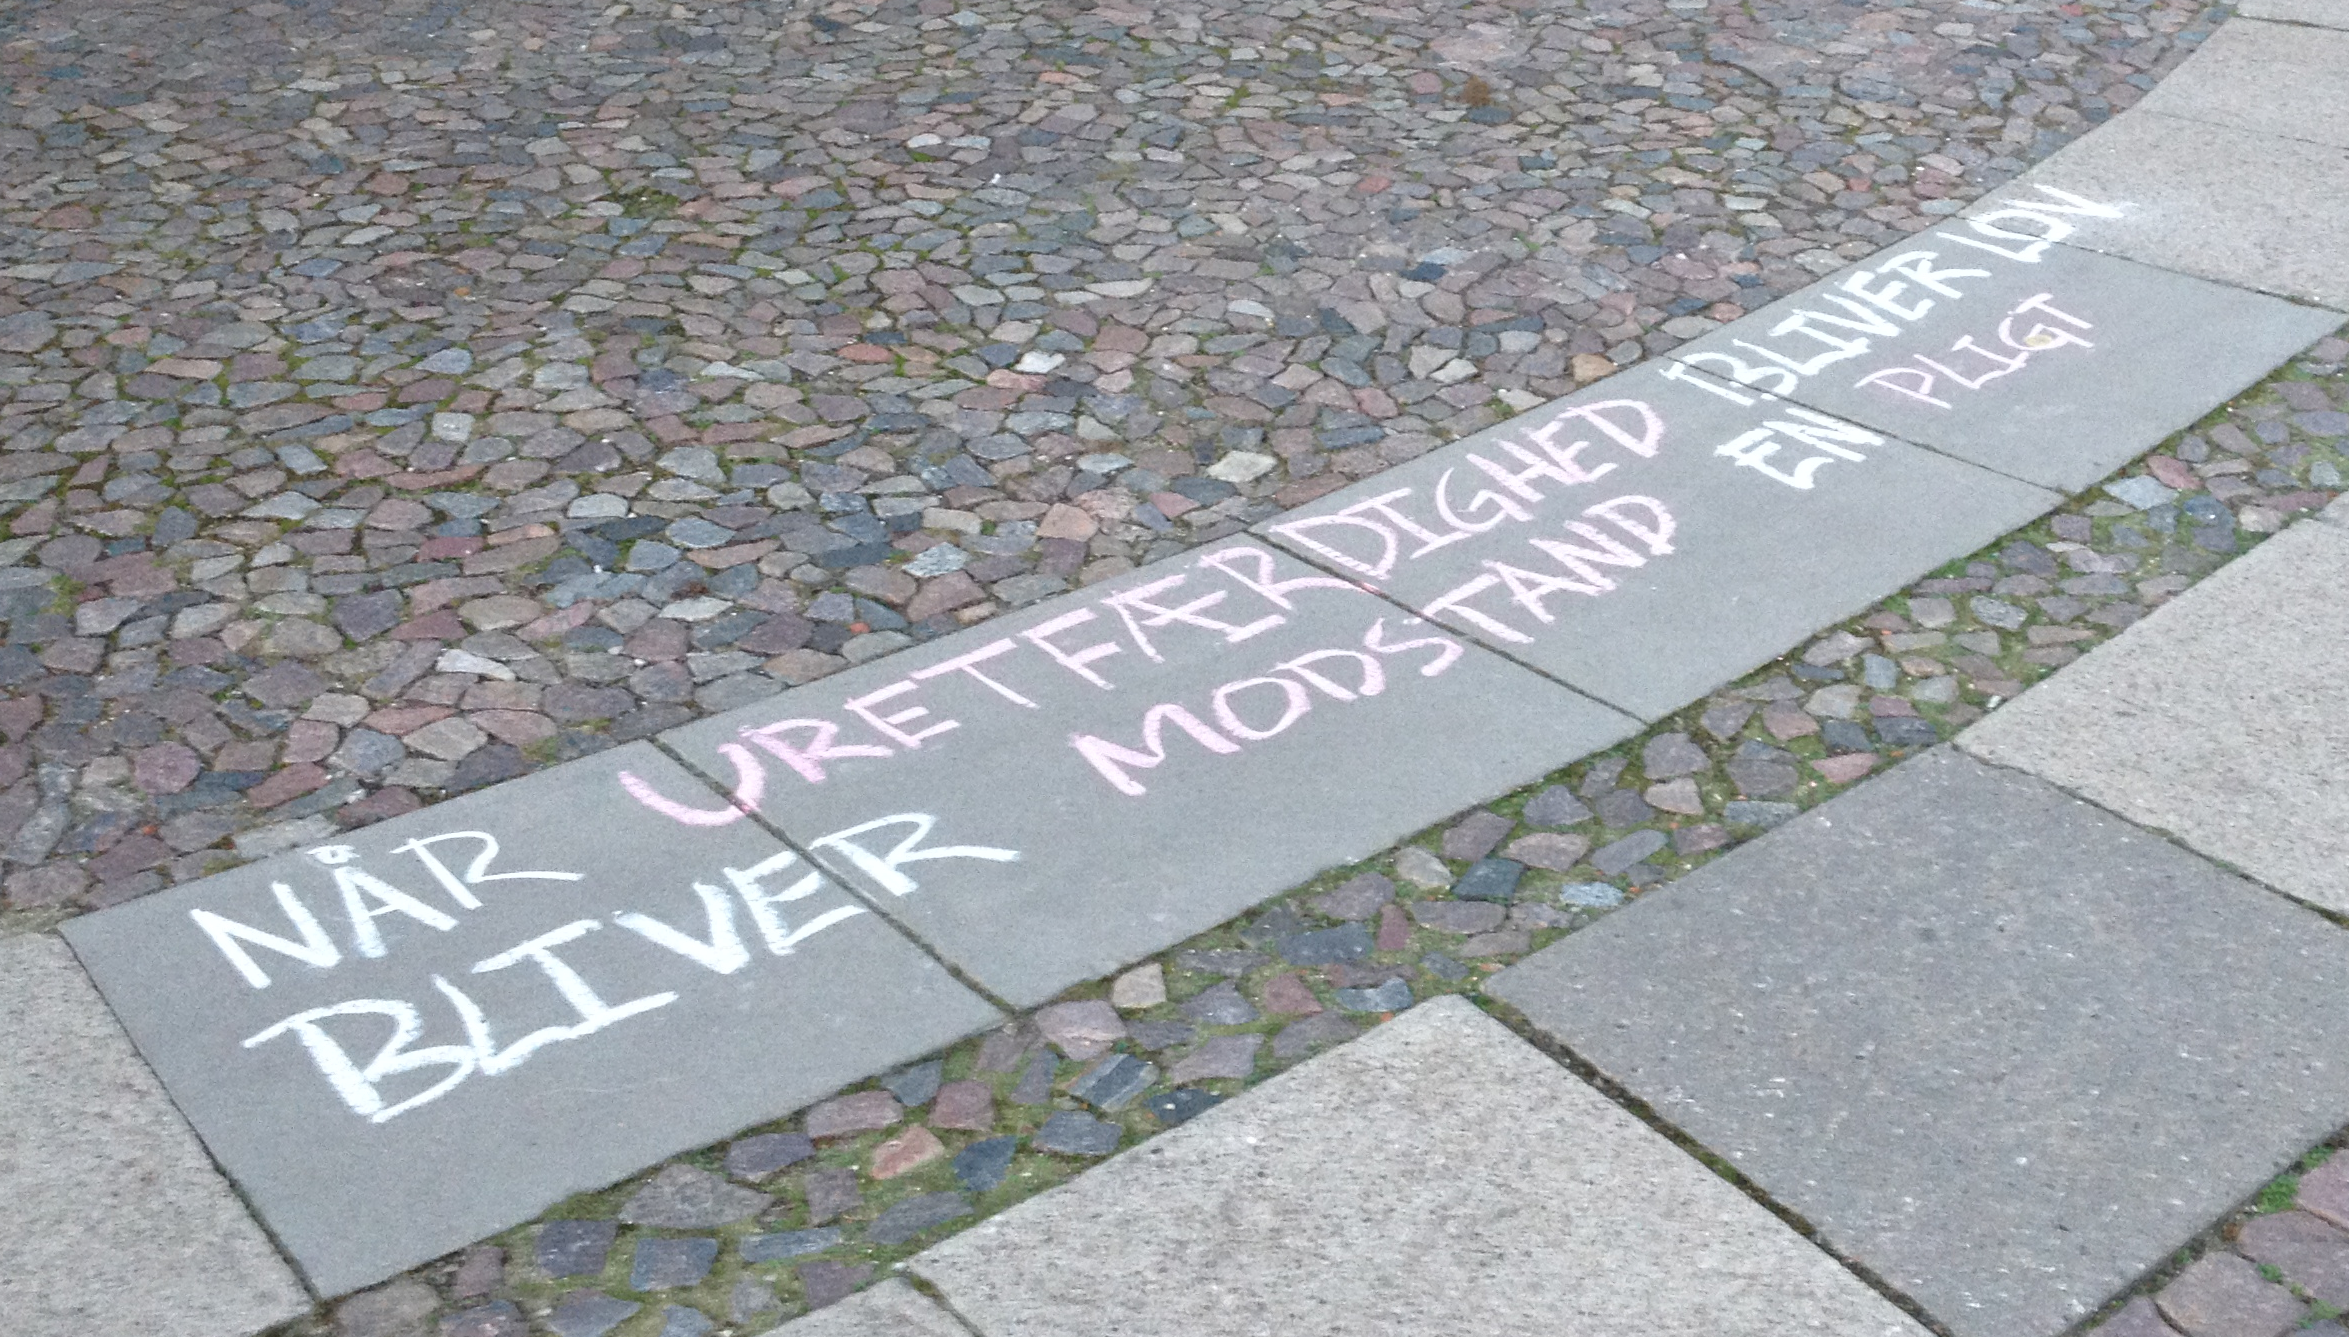 NÅR URETFÆRDIGHED BLIVER LOV
BLIVER MODSTAND EN PLIGT